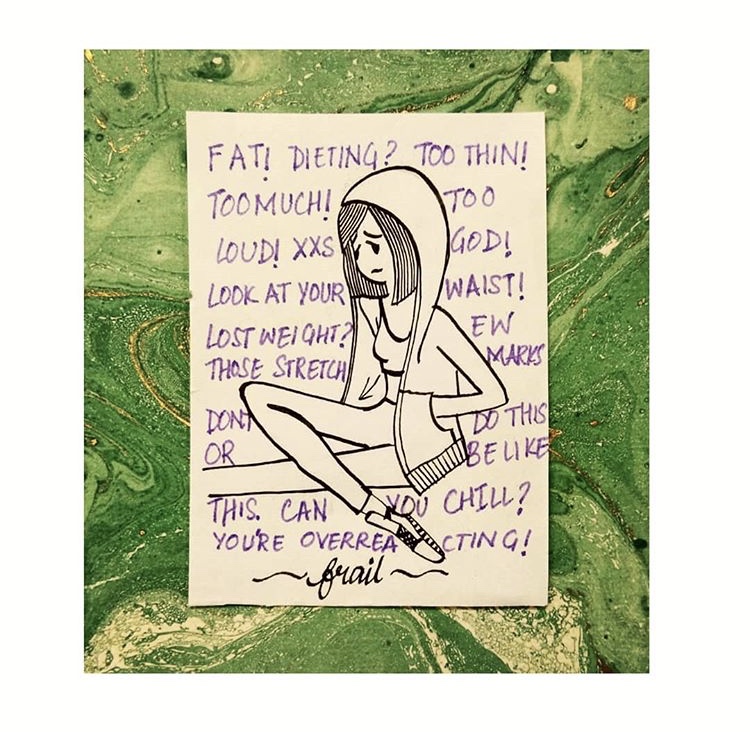 FAT! DIETING? TOO THIN!
TOO MUCH! TOO
LOUD! XXS GOD!
LOOK AT YOUR WAIST!
LOST WEIGHT? EW
THOSE STRETCH MARKS
DON'T DO THIS
OR BE LIKE
THIS. CAN YOU CHILL?
YOU'RE OVERREACTING!
frail